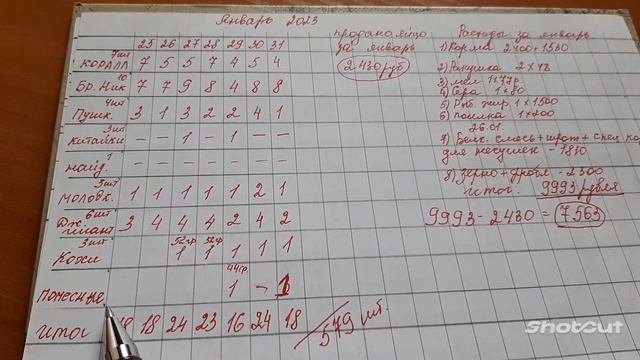 Январь 2023
25 26 27 28 29 30 31
7шт
КОРАЛЛ 7 5 5 7 4 5 4
10
Бр. Ник 7 7 9 8 4 8 8
4шт
Пушк. 3 1 3 2 2 4 1
3шт
китайки — — 1 — 1 — —
1
майд. — — — — — — —
3шт
маловк. 1 1 1 1 1 2 1
6шт
Дж. гигант 3 4 4 4 2 4 2
3шт 52гр 52гр
Кохи 1 1 1 1 1
44гр.
1 - 1
итог 18 24 23 16 24 18 579 шт.
продано яйцо
за январь
2430 руб
Расходы за январь
1) Корма 2400+1530
2) Ракушка 2×48
3) мел 1×77р
4) Сера 1×80
5) Рыб. жир 1×1500
6) поилка 1×200
26.01.
7) Белк. смесь + шрот + спец ко
для несушек - 1810
8) Зерно + дробл - 2300
Итог: 9993 рубля
9993 - 2430 = 7563
Shotcut